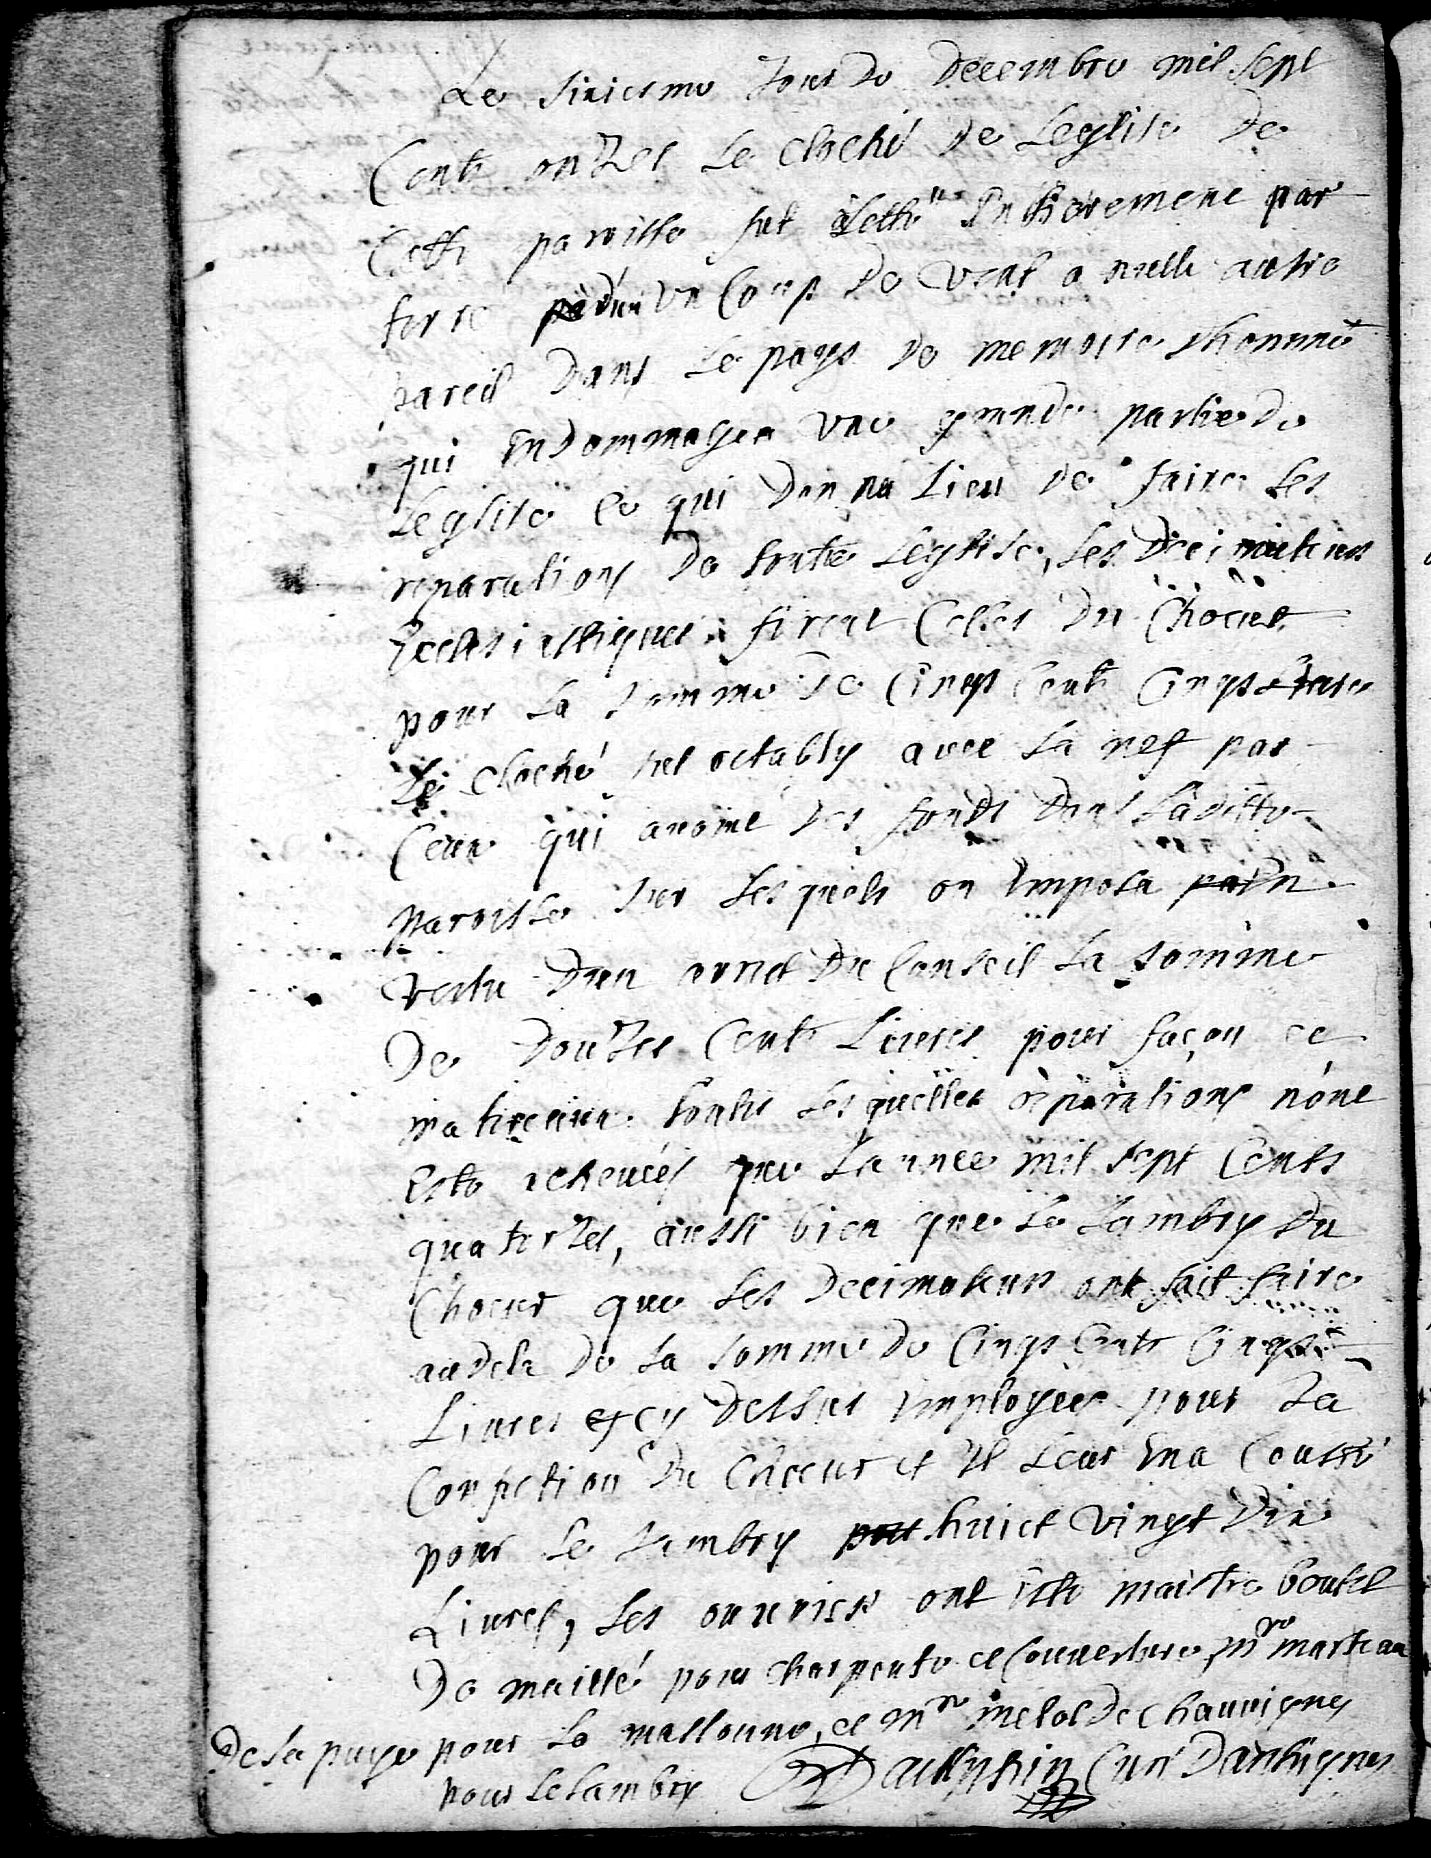 Le sixiesme Jour de Decembre mil sept
Cents onzes Le Cloché de Leglise de
Cette paroisse fut Entierement par
terre un Coup de vent a nulle autre
pareil Dans Le pays de memoire dhomme
qui Endommagea une grande partie de
Leglise Ce qui donna Lieu de faire Les
reparations de toute Leglise, Les Decimateurs
Ecclesiastiques firent Celles du Choeur
pour La somme de Cinqs Cents Cinqs
Le Cloché fut rétably avec La nef par
Ceux qui avoine des fonds Dans Laditte
paroisse sur Lesquels on Imposa
vertu Dun arrest Du Conseil La somme
De Douzes Cents Livres pour façon et
matireaux toutes Lesquelles réparations n'ont
Esté achevées que Lannee mil sept Cents
quatorzes, aussi bien que Le Lambry du
Choeur que Les Decimateurs ont fait faire
audela de La somme de Cinqs Cents Cinqs
Livres cy dessus Employée pour La
Confection du Choeur et Il Leur Ena Cousté
pour Le Lambry huict vingt Dix
Livres, Les ouvriers ont esté maistre boutet
De maillé pour Charpente et Couverture, mre marteau
De La puye pour La massonne, et mre melot De Chauvigny
pour Le Lambry Daulphin Curé Danthignes